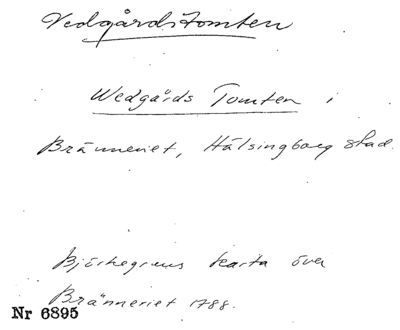 Vedgårdstomten
Wedgårds Tomten i
Bränneriet, Hälsingborg stad.
Björkegrens karta över
Bränneriet 1788.
Nr 6895